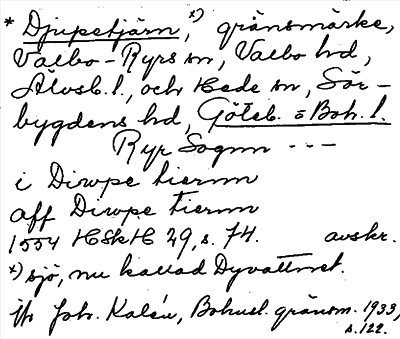 * Djupetjärn, x) gränsmärke,
Valbo-Ryrs sn, Valbo hd,
Älvsb. l., och Hede sn, Sör-
bygdens hd, Göteb. o Boh. l.
Ryr Sognn ---
i Diwpe tiernn
aff Diwpe tiernn
1554 HSkH 29, s. 74. avskr.
x) sjö, nu kallad Dyvattnet.
Joh. Kalén, Bohusl. gränsm. 1933,
s. 122.